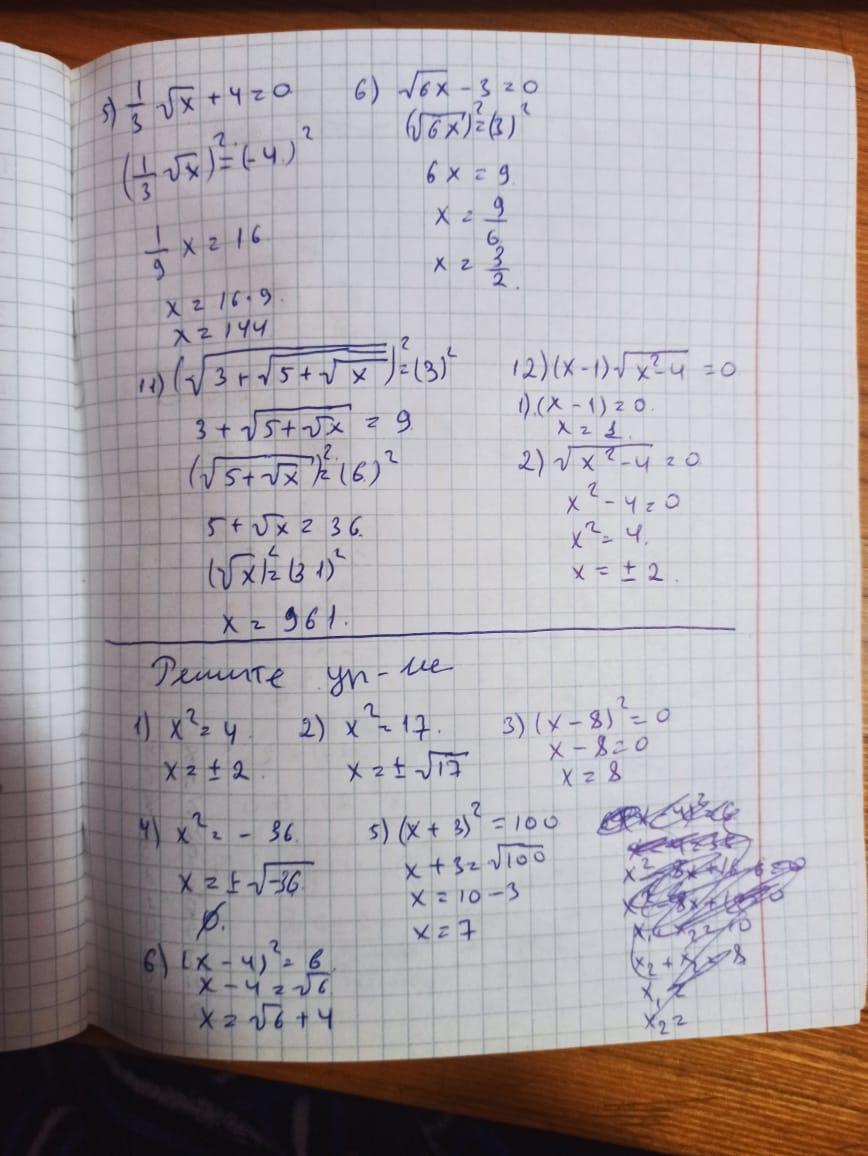 5) 1/3 √x + 4 = 0
(1/3 √x)² = (-4)²
1/9 x = 16
x = 16·9.
x = 144
6) √6x - 3 = 0
(√6x)² = (3)²
6x = 9
x = 9/6
x = 3/2.
11) (√(3 + √(5 + √x)))² = (3)²
3 + √(5 + √x) = 9
(√(5 + √x))² = (6)²
5 + √x = 36
(√x)² = (31)²
x = 961.
12) (x - 1)√(x² - 4) = 0
1). (x - 1) = 0.
x = 1.
2) √(x² - 4) = 0
x² - 4 = 0
x² = 4.
x = ± 2.
Решите ур-ие
1) x² = 4
x = ± 2
2) x² = 17.
x = ± √17
3) (x - 8)² = 0
x - 8 = 0
x = 8
4) x² = - 36
x = ± √-36
∅.
5) (x + 3)² = 100
x + 3 = √100
x = 10 - 3
x = 7
6) (x - 4)² = 6
x - 4 = √6
x = √6 + 4
x₁ =
x₂ =